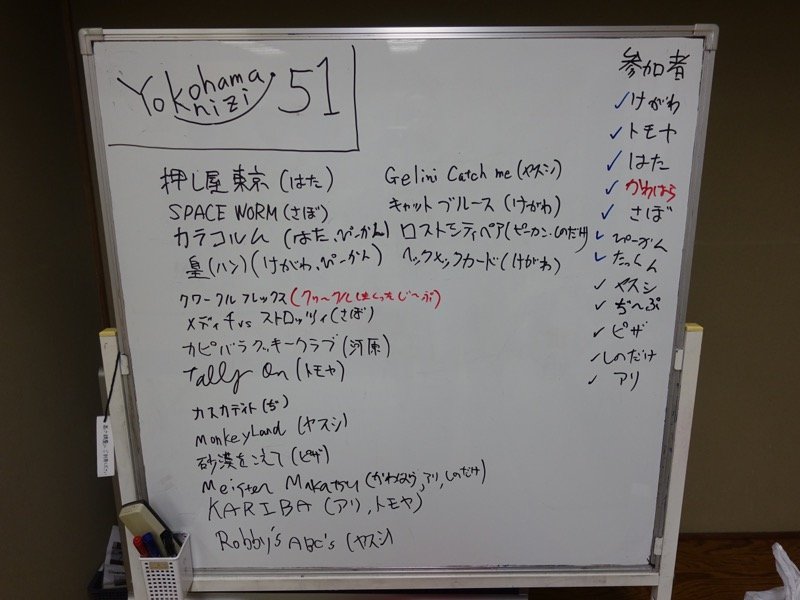 Yokohama
nizi
51
押し屋東京 (はた)
SPACE WORM (さぼ)
カラコルム (はた、ぴーかん)
皇(ハン) (けがわ、ぴーかん)
クワークルフレックス
メディチvsストロッツィ (さぼ)
カピバラクッキークラブ (河原)
Tally On (トモヤ)
カスカディト (ぢ)
MonkeyLand (ヤスシ)
砂漠をこえて (ピザ)
Meister Makatsu (かわはら, アリ, しのだけ)
KARIBA (アリ, トモヤ)
Robby's ABC's (ヤスシ)
Gelini Catch me (ヤスシ)
キャットブルース (けがわ)
ロストシティペア (ピーカン・しのだけ)
ヘックメックカード (けがわ)
参加者
けがわ
トモヤ
はた
かわはら
さぼ
ぴーかん
たっくん
ヤスシ
ぢ〜ぷ
ピザ
しのだけ
アリ